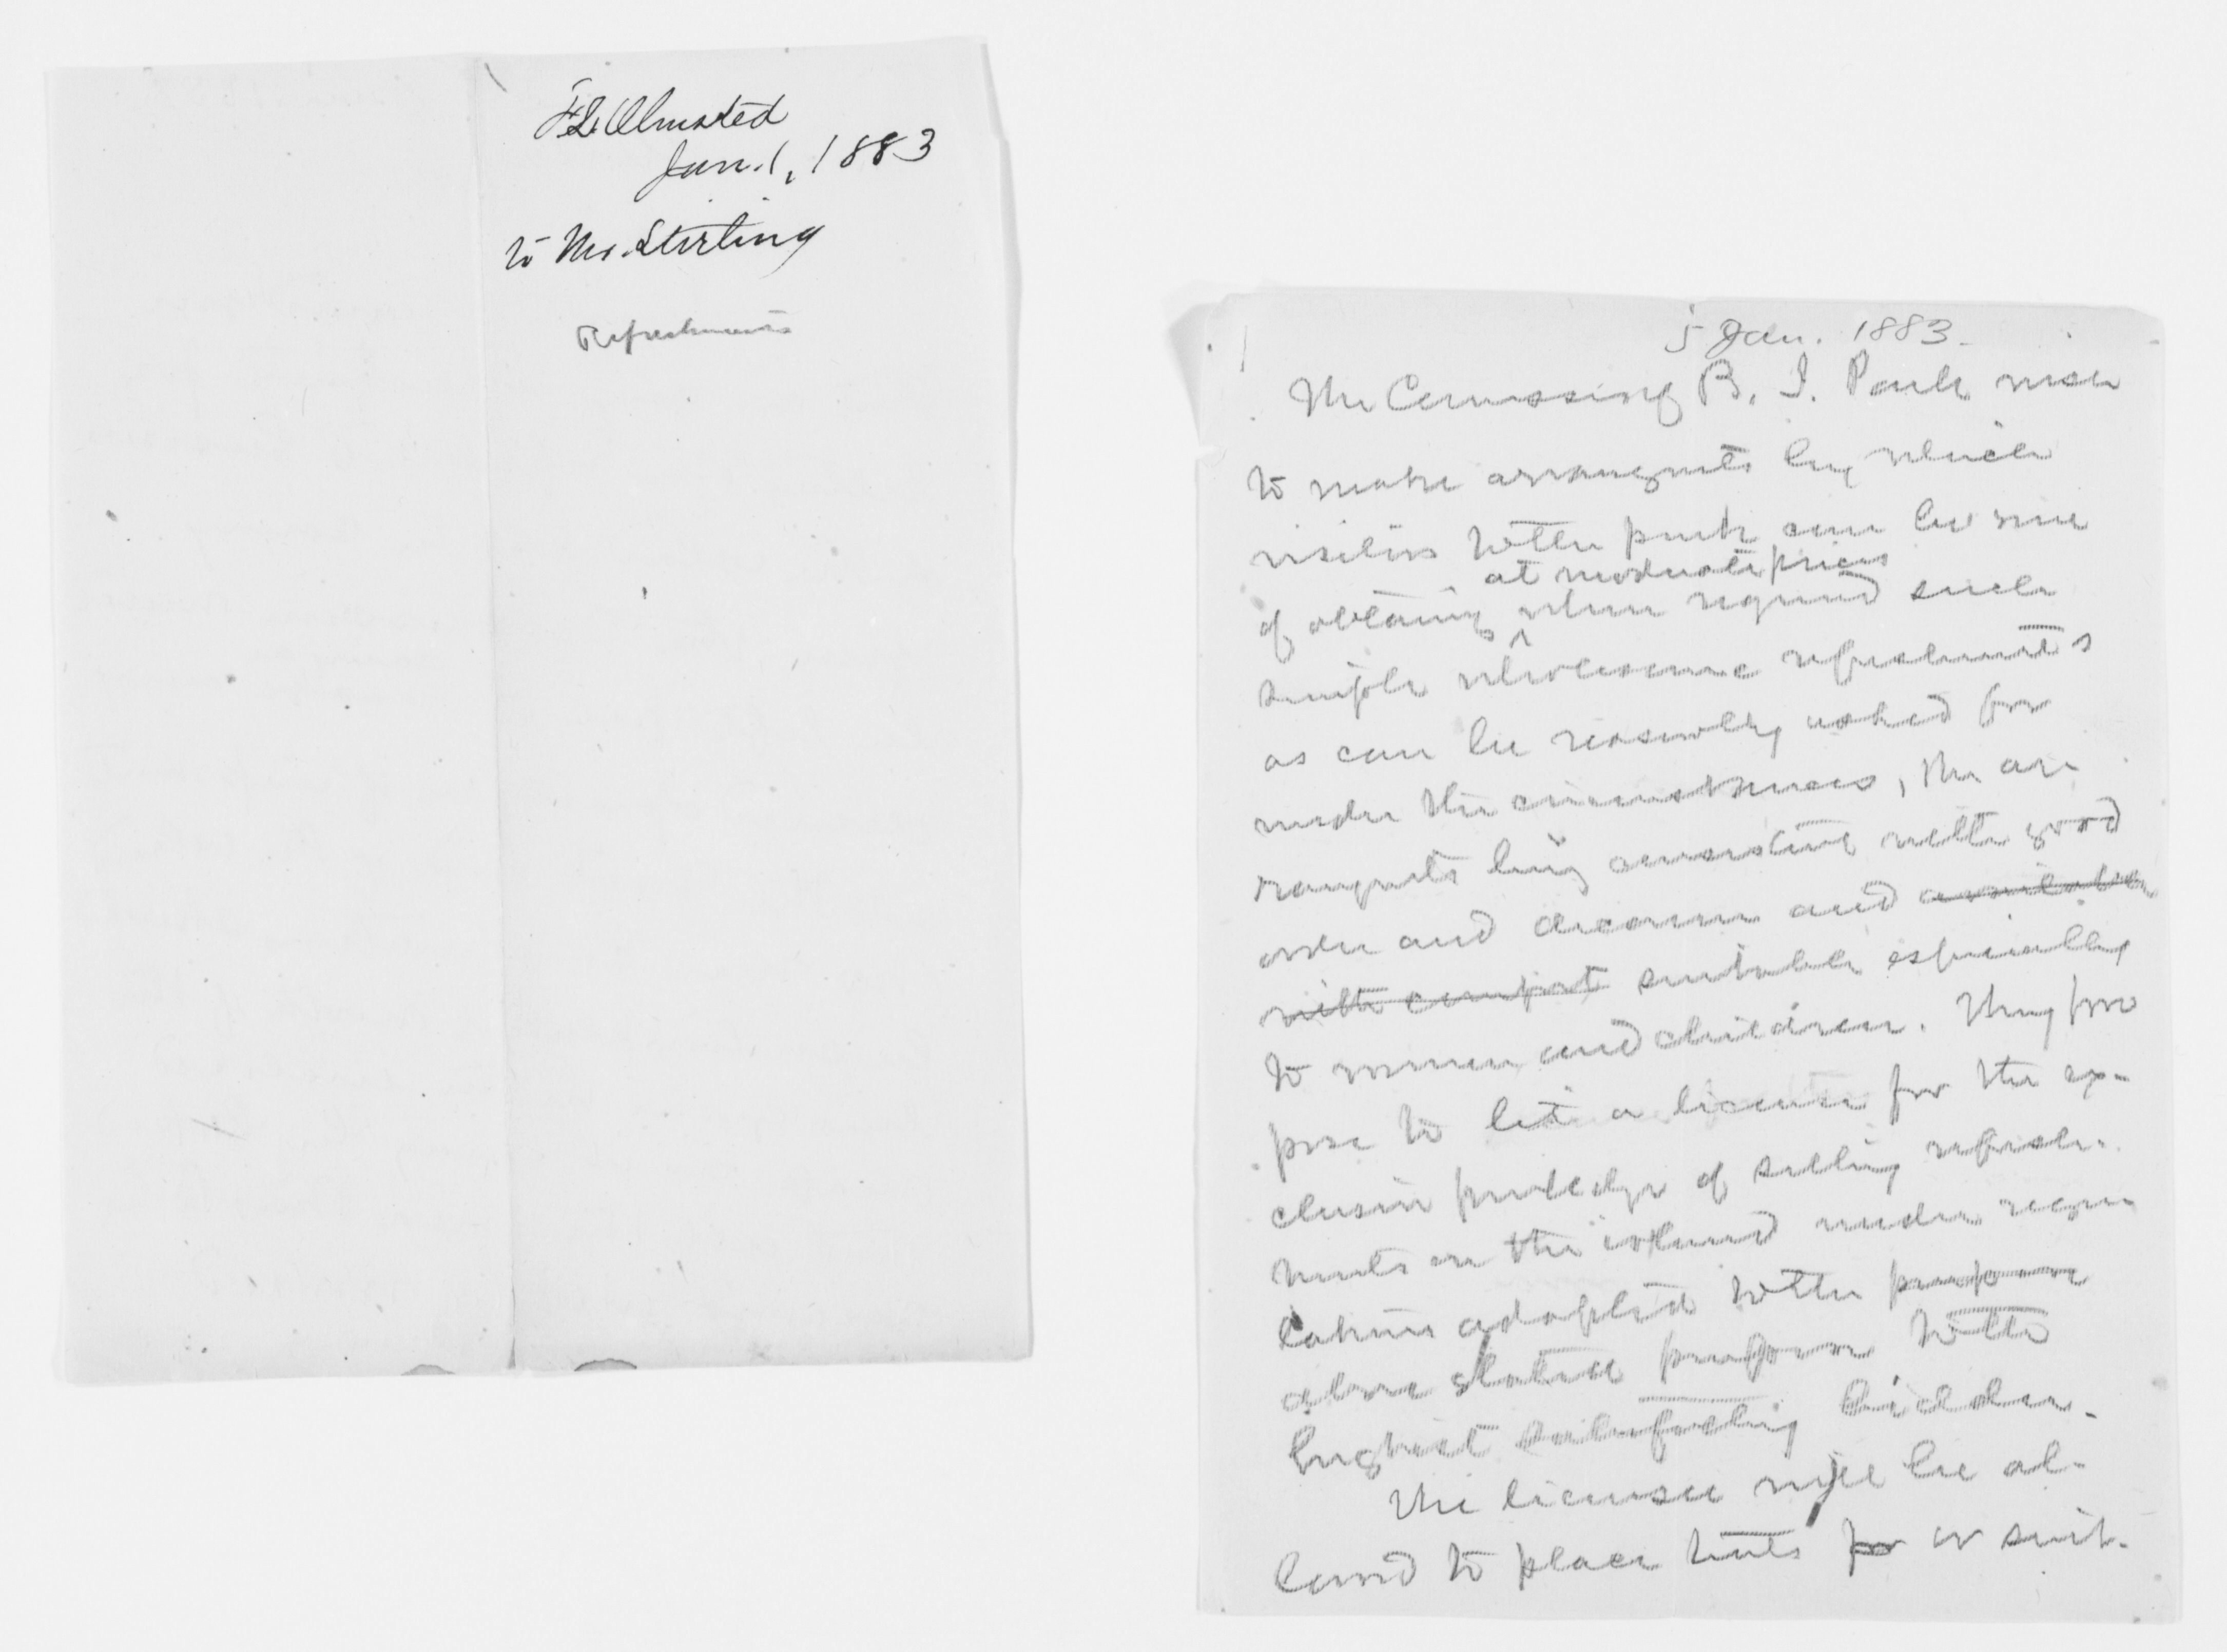 F. L. Olmsted
Jan. 1, 1883
to Mr. Stirling
Refreshments
5 Jan. 1883.
The Commssing B. I. Park wish
to make arrangmts by which
visitors to the park can be sure
at moderate prices
of obtaining ^ when required such
simple wholesome refreshments
as can be reasonably asked for
under the circumstances, the ar-
rangmts being consistent with good
order and decorum and
with comfort suitable especially
to women and children. They pro
pose to let a license for the ex-
clusive privilege of selling refresh-
ments on the island under regu
lations adapted to the purpose
above stated purpose to the
highest satisfactory bidder.
The licensee will be al-
lowed to place tents for or suit-